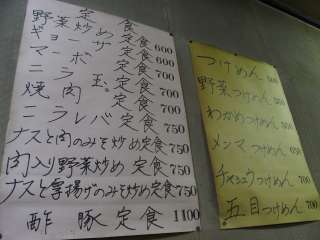 定食
野菜炒め定食 600
ギョーザ定食 600
マーボ定食 700
ニラ玉定食 700
焼肉定食 700
ニラレバ定食 750
ナスと肉のみそ炒め定食 750
肉入り野菜炒め定食 750
ナスと厚揚げのみそ炒め定食 750
酢豚定食 1100
つけめん
野菜つけめん
わかめつけめん
メンマつけめん
チャーシュウつけめん 700
五目つけめん 700